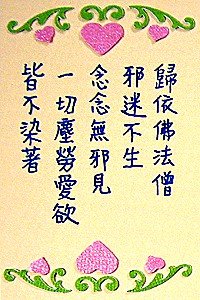 歸依佛法僧
邪迷不生
念念無邪見
一切塵勞愛欲
皆不染著